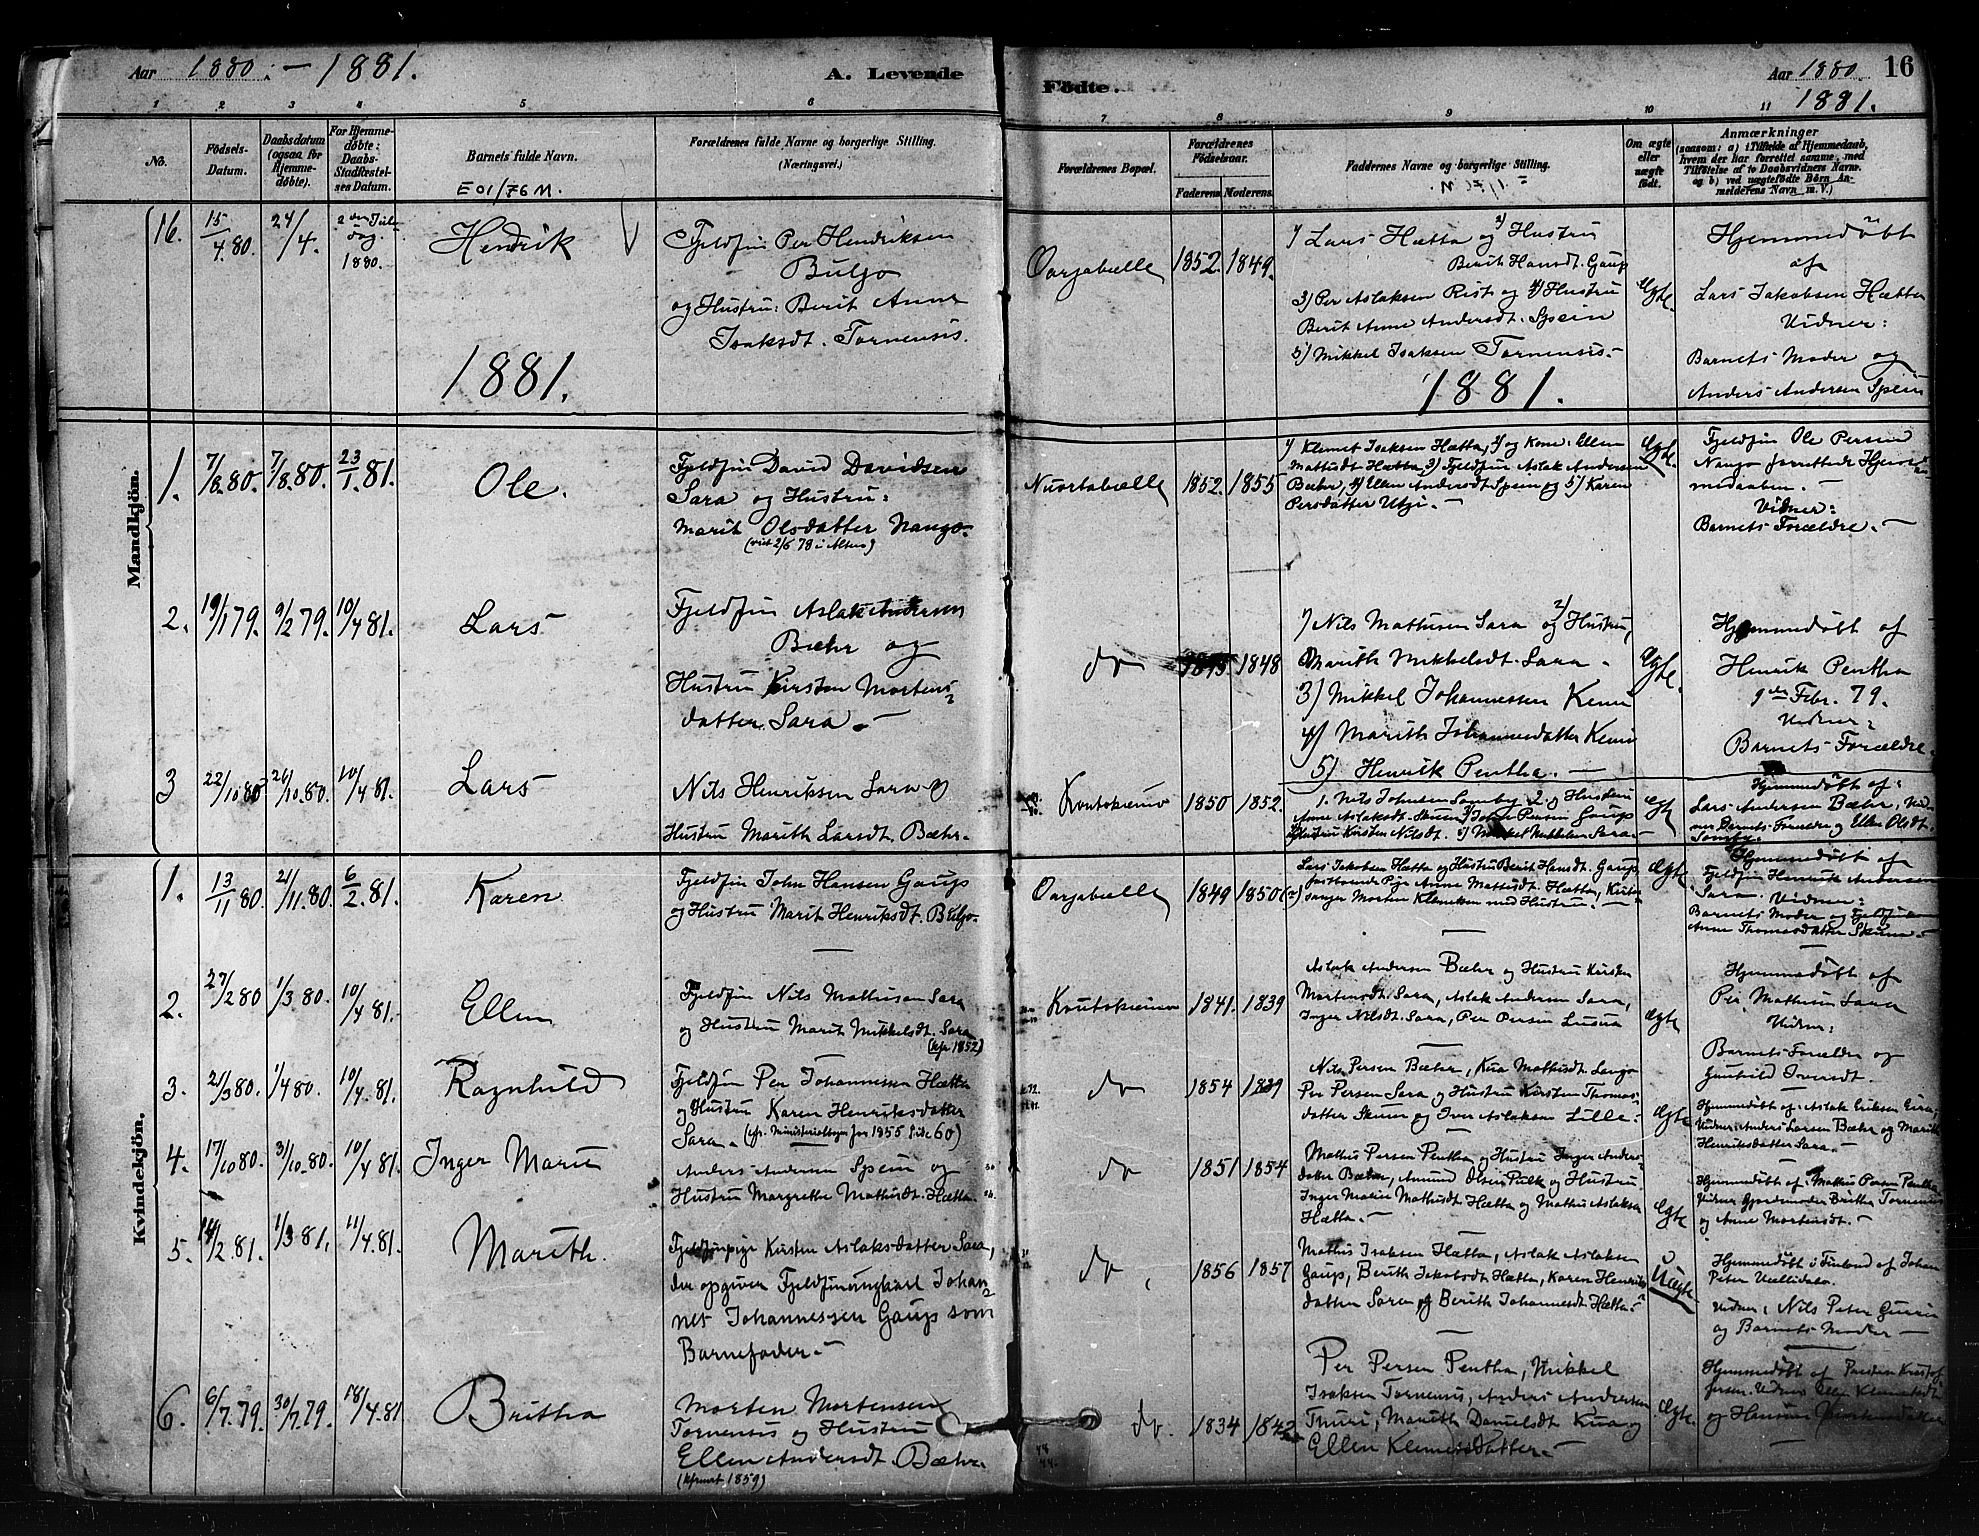 Aar 1880. - 1881.
A. Levende
Fødte.
Aar 1880. 16
1881.
1 2 3 4 5 6 7 8 9 10 11
No.
Fødsels-
Datum.
Daabsdatum
(ogsaa for
Hjemme-
døbte).
For Hjemme-
døbte:
Daabs-
Stadfæstel-
ses Datum.
Barnets fulde Navn.
E 01/76 M.
Forældrenes fulde Navne og borgerlige Stilling.
(Næringsvei.)
Forældrenes Bopæl.
Forældrenes
Fødselsaar.
Faderens. Moderens.
Faddernes Navne og borgerlige Stilling.
Om ægte
eller
uægte
født.
Anmærkninger
(saasom: a) i Tilfælde af Hjemmedaab,
hvem der har forrettet samme, med
Tilføielse af to Daabsvidners Navne.
og b) ved uægtefødte Børn An-
melderens Navn m. V.)
Mandkjøn.
16. 15/4 80. 24/4. 2den Juledag. 1880.
Hendrik
Fjeldfin Per Hendriksen
Buljo
og Hustru: Berit Anne
Isaksdt. Tornensis.
Oarjabælle 1852. 1849.
1) Lars Hætta og 2) Hustru
Berit Hansdt. Gaup
3) Per Aslaksen Rist og 4) Hustru
Berit Anne Andersdt. Spein
5) Mikkel Isaksen Tornensis.-
Ægte.
Hjemmedøbt
af
Lars Jakobsen Hætta
Vidner:
Barnets Moder og
Anders Andersen Spein
1881.
1881.
1. 7/8.80. 7/8.80. 23/1.81.
Ole.
Fjeldfin David Davidsen
Sara og Hustru:
Marit Olsdatter Nango.
(viet 2/6 78 i Alten)
Nuortabælle 1852. 1855
1) Klemet Isaksen Hætta, 2) og Kone: Ellen
Mathisdt Hætta, 3) Fjeldfin Aslak Andersen
Bæhr, 4) Ellen Andersdt Spein og 5) Karen
Persdatter Utsi. -
Ægte.
Fjeldfin Ole Persen
Nango forrettede Hjem-
medaaben. -
Vidner:
Barnets Forældre. -
2. 19/1 79. 9/2 79. 10/4 81.
Lars
Fjeldfin Aslak Andersen
Bæhr og
Hustru Kirsten Mortens
datter Sara. -
do 1848
1) Nils Mathisen Sara og 2) Hustru,
Marith Mikkelsdt. Sara.
3) Mikkel Johannessen Kemi
4) Marith Johannesdatter Kemi
5) Henrik Pentha. -
Ægte.
Hjemmedøbt af
Henrik Pentha
9de Febr. 79.
Vidner:
Barnets Forældre.
3 22/10 80 26/10.80. 10/4 81.
Lars
Nils Henriksen Sara og
Hustru Marith Larsdt. Bæhr.
Koutokeino 1850 1852.
1. Nils Johnsen Somby 2. og Hustru
Anne Aslaksdt. Skum 3) John Persen Gaup
Hustru Kirsten Nilsdt. 5) Mikkel Mikkelsen Sara
Ægt
Hjemmedøbt af:
Lars Andersen Bæhr, Vid-
ner Barnets Forældre og Ellen Olsdt.
Somby.
Kvindekjøn.
1. 13/11 80. 21/11.80. 6/2.81.
Karen
Fjeldfin John Hansen Gaup
og Hustru Marit Henriksdt. Buljo.
Oarjabælle 1849 1850
Lars Jakobsen Hætta og Hustru Berit Hansdt. Gaup,
fastboende Pige Anne Mathisdt. Hætta, Kirke-
sanger Morten Klemetsen med Hustru. -
Ægte
Hjemmedøbt af
Fjeldfin Henrik Andersen
Sara. Vidner:
Barnets Moder og Fjeldfin
Anne Thomasdatter Skum.
2. 27/2 80 1/3 80. 10/4 81.
Ellen
Fjeldfin Nils Mathisen Sara
og Hustru Marit Mikkelsdt. Sara
(kfr 1852)
Koutokeino 1841. 1839
Aslak Andersen Bæhr og Hustru Kirsten
Mortensdt. Sara, Aslak Andersen Sara,
Inger Nilsdt. Sara, Per Persen Lusua
Ægte
Hjemmedøbt af
Per Mathisen Sara
Vidner:
Barnets Forældre og
Gunhild Iversdt.
3. 21/3 80. 1/4 80. 10/4.81.
Ragnhild
Fjeldfin Per Johannessen Hætta
og Hustru Karen Henriksdatter
Sara. (kfr. Ministerialbogen for 1855 Side 60)
do 1854 1829
Nils Persen Bæhr, Kua Mathisdt. Lango
Per Persen Sara og Hustru Kirsten Thomas-
datter Skum og Iver Aslaksen Lille.
Ægte
Hjemmedøbt af: Aslak Eriksen Eira,
Vidner: Anders Larsen Bæhr og Marith
Henriksdatter Sara. -
4. 17/10 80. 31/10.80. 10/4 81.
Inger Marie
Anders Andersen Spein og
Hustru Margrethe Mathisdt. Hætta.
do 1851 1854
Mathis Persen Pentha og Hustru Inger Anders-
datter Bæhr, Amund Olsen Pulk og Hustru
Inger Marie Mathisdt Hætta og Mathis Aslaksen
Hætta. -
Ægte
Hjemmedøbt af Mathis Persen Pentha
Vidner Gjordemoder Britha Tornensis
og Anne Mortensdt. -
5. 14/2 81. 1/3 81, 11/4.81.
Marith.
Fjeldfinpige Kirsten Aslaksdatter Sara,
der opgiver Fjeldfinungkarl Johan-
nes Johannessen Gaup som
Barnefader. -
do. 1856 1857
Mathis Isaksen Hætta, Aslak Aslaksen
Gaup, Berith Jakobsdt Hætta, Karen Henriks-
datter Sara og Berith Johannesdt Hætta. -
Uægte
Hjemmedøbt i Finland af Johan
Peter Vællidalo.
Vidner: Nils Peter
og Barnets Moder -
6. 6/7.79. 30/7.79. 18/4.81
Britha
Morten Mortensen
Tornensis og Hustru
Ellen Andersdt. Bæhr.
(kfrmert 1859)
do. 1834 1842
Per Persen Pentha, Mikkel
Isaksen Tornensis, Anders Andersen
Thuri, Marith Danielsdt Kua og
Ellen Klemetsdatter. -
Ægte.
Hjemmedøbt af Præsten Kristof-
fersen. Vidner Ellen Klemetsdt.
og